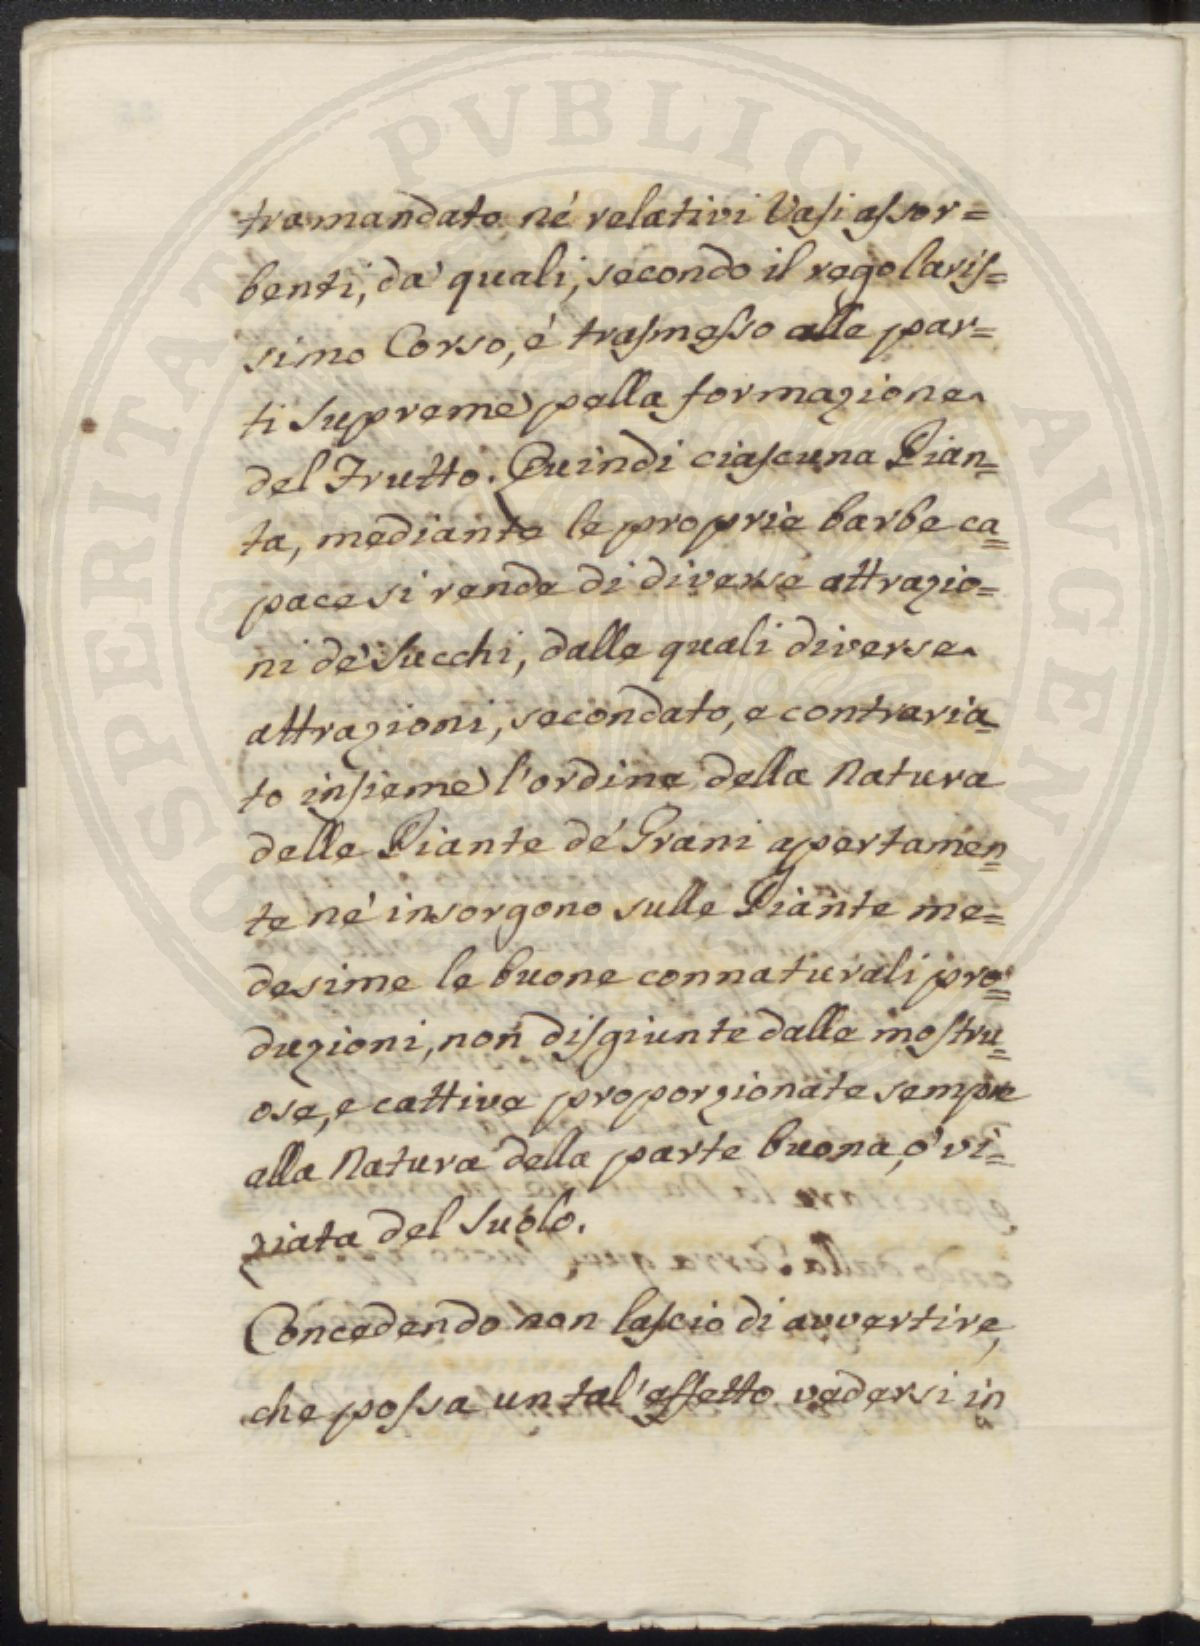 tramandato né relativi Vasi assor=
benti, da' quali, secondo il regolaris=
simo Corso, è trasmesso alle par=
ti supreme pella formazione
del Frutto. Quindi ciascuna Pian=
ta, mediante le proprie barbe ca=
pace si rende di diverse attrazio=
ni de' Succhi, dalle quali diverse
attrazioni, secondato, e contraria=
to insieme l'ordine della Natura
delle Piante de' Grani apertamen=
te né insorgono sulle Piante me=
desime le buone connaturali pro=
duzioni, non disgiunte dalle mostru=
ose, e cattive proporzionate sempre
alla Natura della parte buona, o' vi=
ziata del Suolo.
Concedendo non lascio di avvertire,
che possa un tal' effetto vedersi in
PVBLIC
SPERITATI
AVGEN